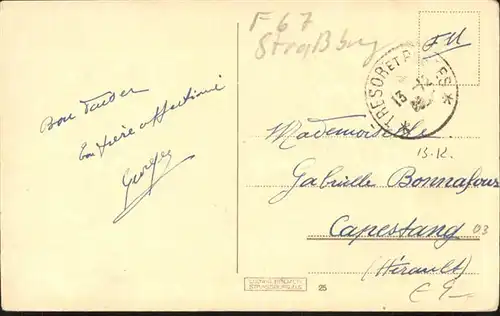 F 67
Straßburg
FM
TRESOR ET POSTES
13
Bon
Ton frère affectionné
Georges
Mademoiselle
13-12.
Gabrielle Bonnafous
Capestang
03
(Hérault)
25